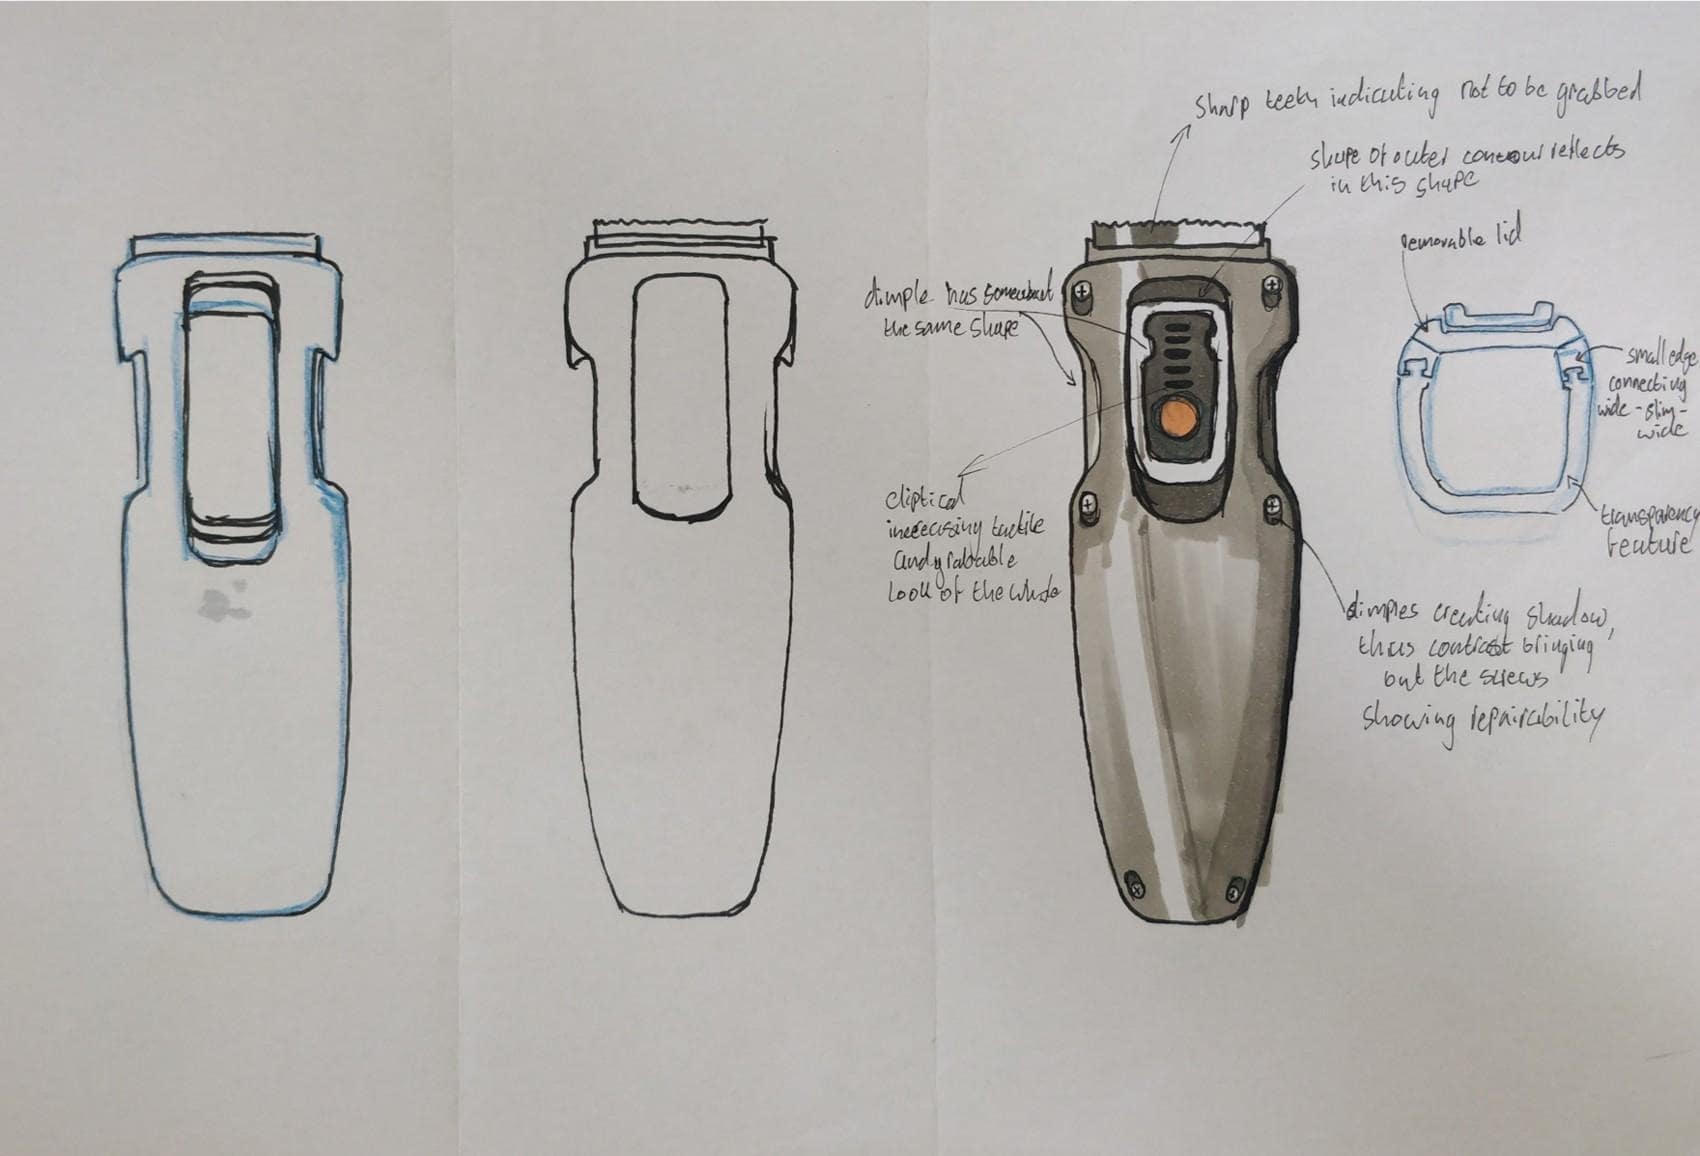 sharp teeth indicating not to be grabbed
shape of outer contour reflects
in this shape
removable lid
dimple has somewhat
the same shape
small edge
connecting
wide - slim -
wide
eliptical
increasing tactile
and
look of the whole
transparency
feature
dimples creating shadow,
thus contrast bringing
out the screws
showing repairability